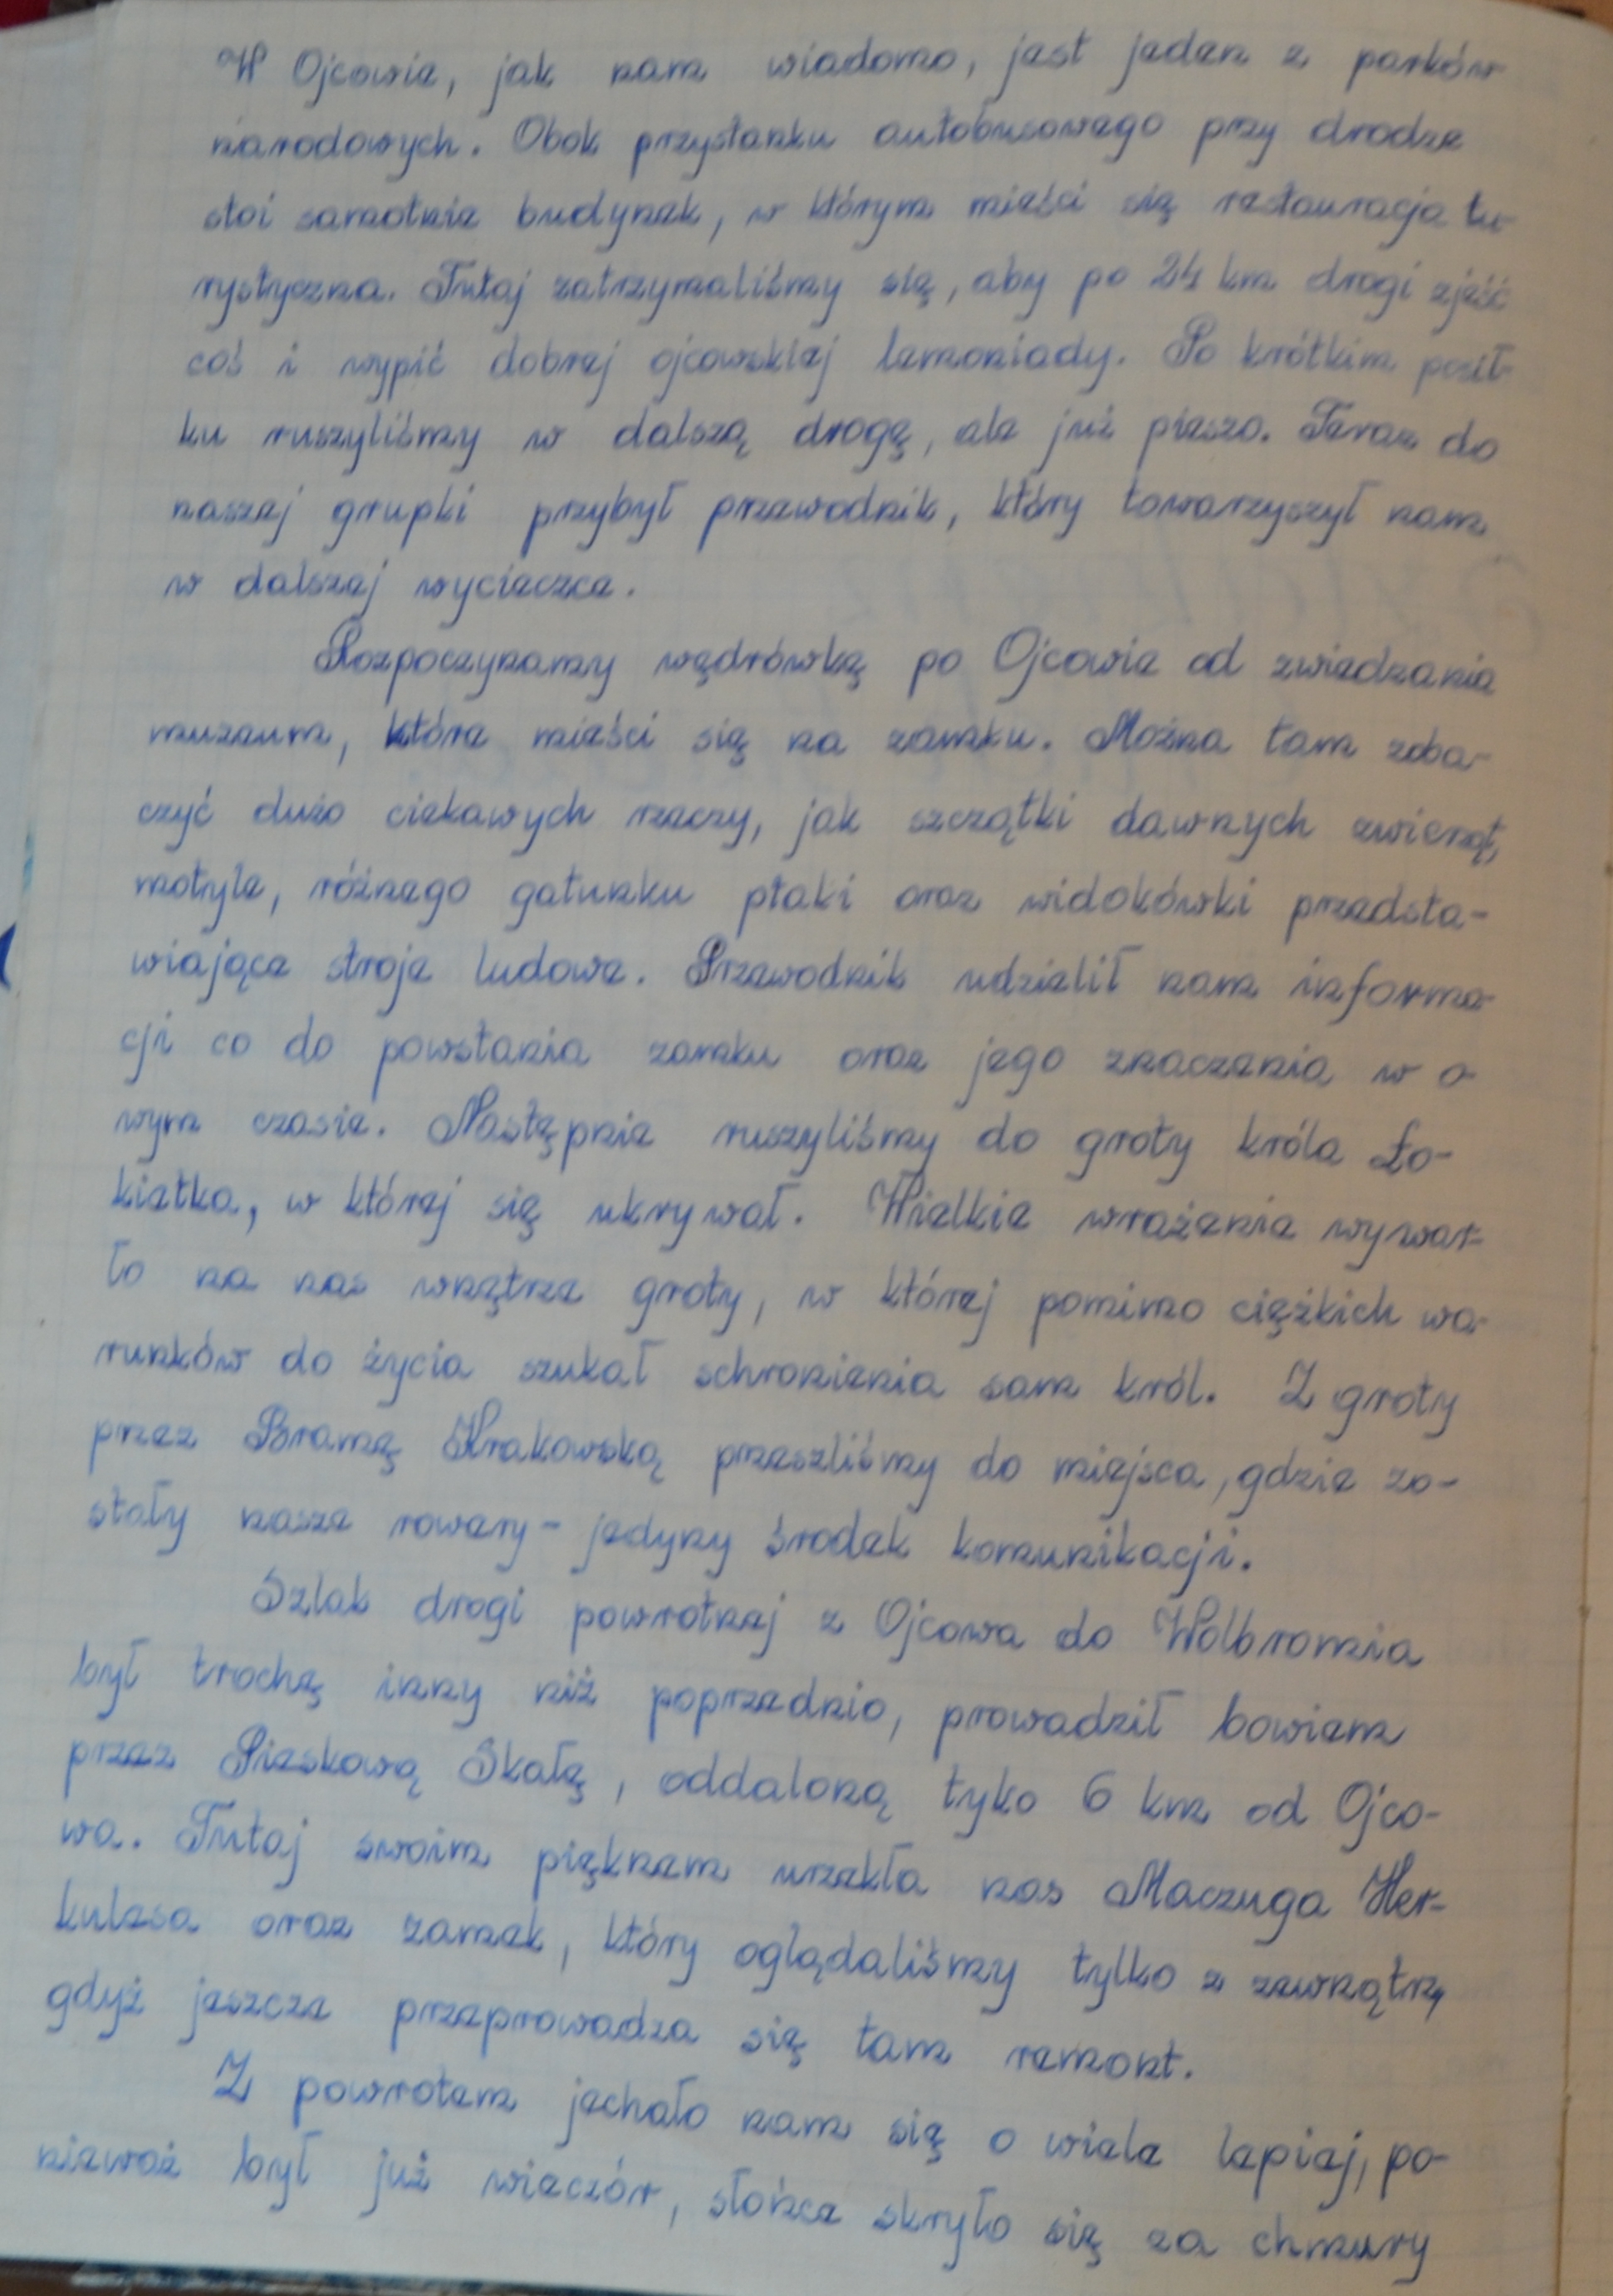 W Ojcowie, jak nam wiadomo, jest jeden z parków
narodowych. Obok przystanku autobusowego przy drodze
stoi samotnie budynek, w którym mieści się restauracja tu-
rystyczna. Tutaj zatrzymaliśmy się, aby po 24 km drogi zjeść
coś i wypić dobrej ojcowskiej lemoniady. Po krótkim posił-
ku ruszyliśmy w dalszą drogę, ale już pieszo. Teraz do
naszej grupki przybył przewodnik, który towarzyszył nam
w dalszej wycieczce.
Rozpoczynamy wędrówkę po Ojcowie od zwiedzania
muzeum, które mieści się na zamku. Można tam zoba-
czyć dużo ciekawych rzeczy, jak szczątki dawnych zwierząt,
motyle, różnego gatunku ptaki oraz widokówki przedsta-
wiające stroje ludowe. Przewodnik udzielił nam informa-
cji co do powstania zamku oraz jego znaczenia w o-
wym czasie. Następnie ruszyliśmy do groty króla Ło-
kietka, w której się ukrywał. Wielkie wrażenie wywar-
ło na nas wnętrze groty, w której pomimo ciężkich wa-
runków do życia szukał schronienia sam król. Z groty
przez Bramę Krakowską przeszliśmy do miejsca, gdzie zo-
stały nasze rowery - jedyny środek komunikacji.
Szlak drogi powrotnej z Ojcowa do Wolbromia
był trochę inny niż poprzednio, prowadził bowiem
przez Pieskową Skałę, oddaloną tyko 6 km od Ojco-
wa. Tutaj swoim pięknem urzekła nas Maczuga Her-
kulesa oraz zamek, który oglądaliśmy tylko z zewnątrz,
gdyż jeszcze przeprowadza się tam remont.
Z powrotem jechało nam się o wiele lepiej, po-
nieważ był już wieczór, słońce skryło się za chmury